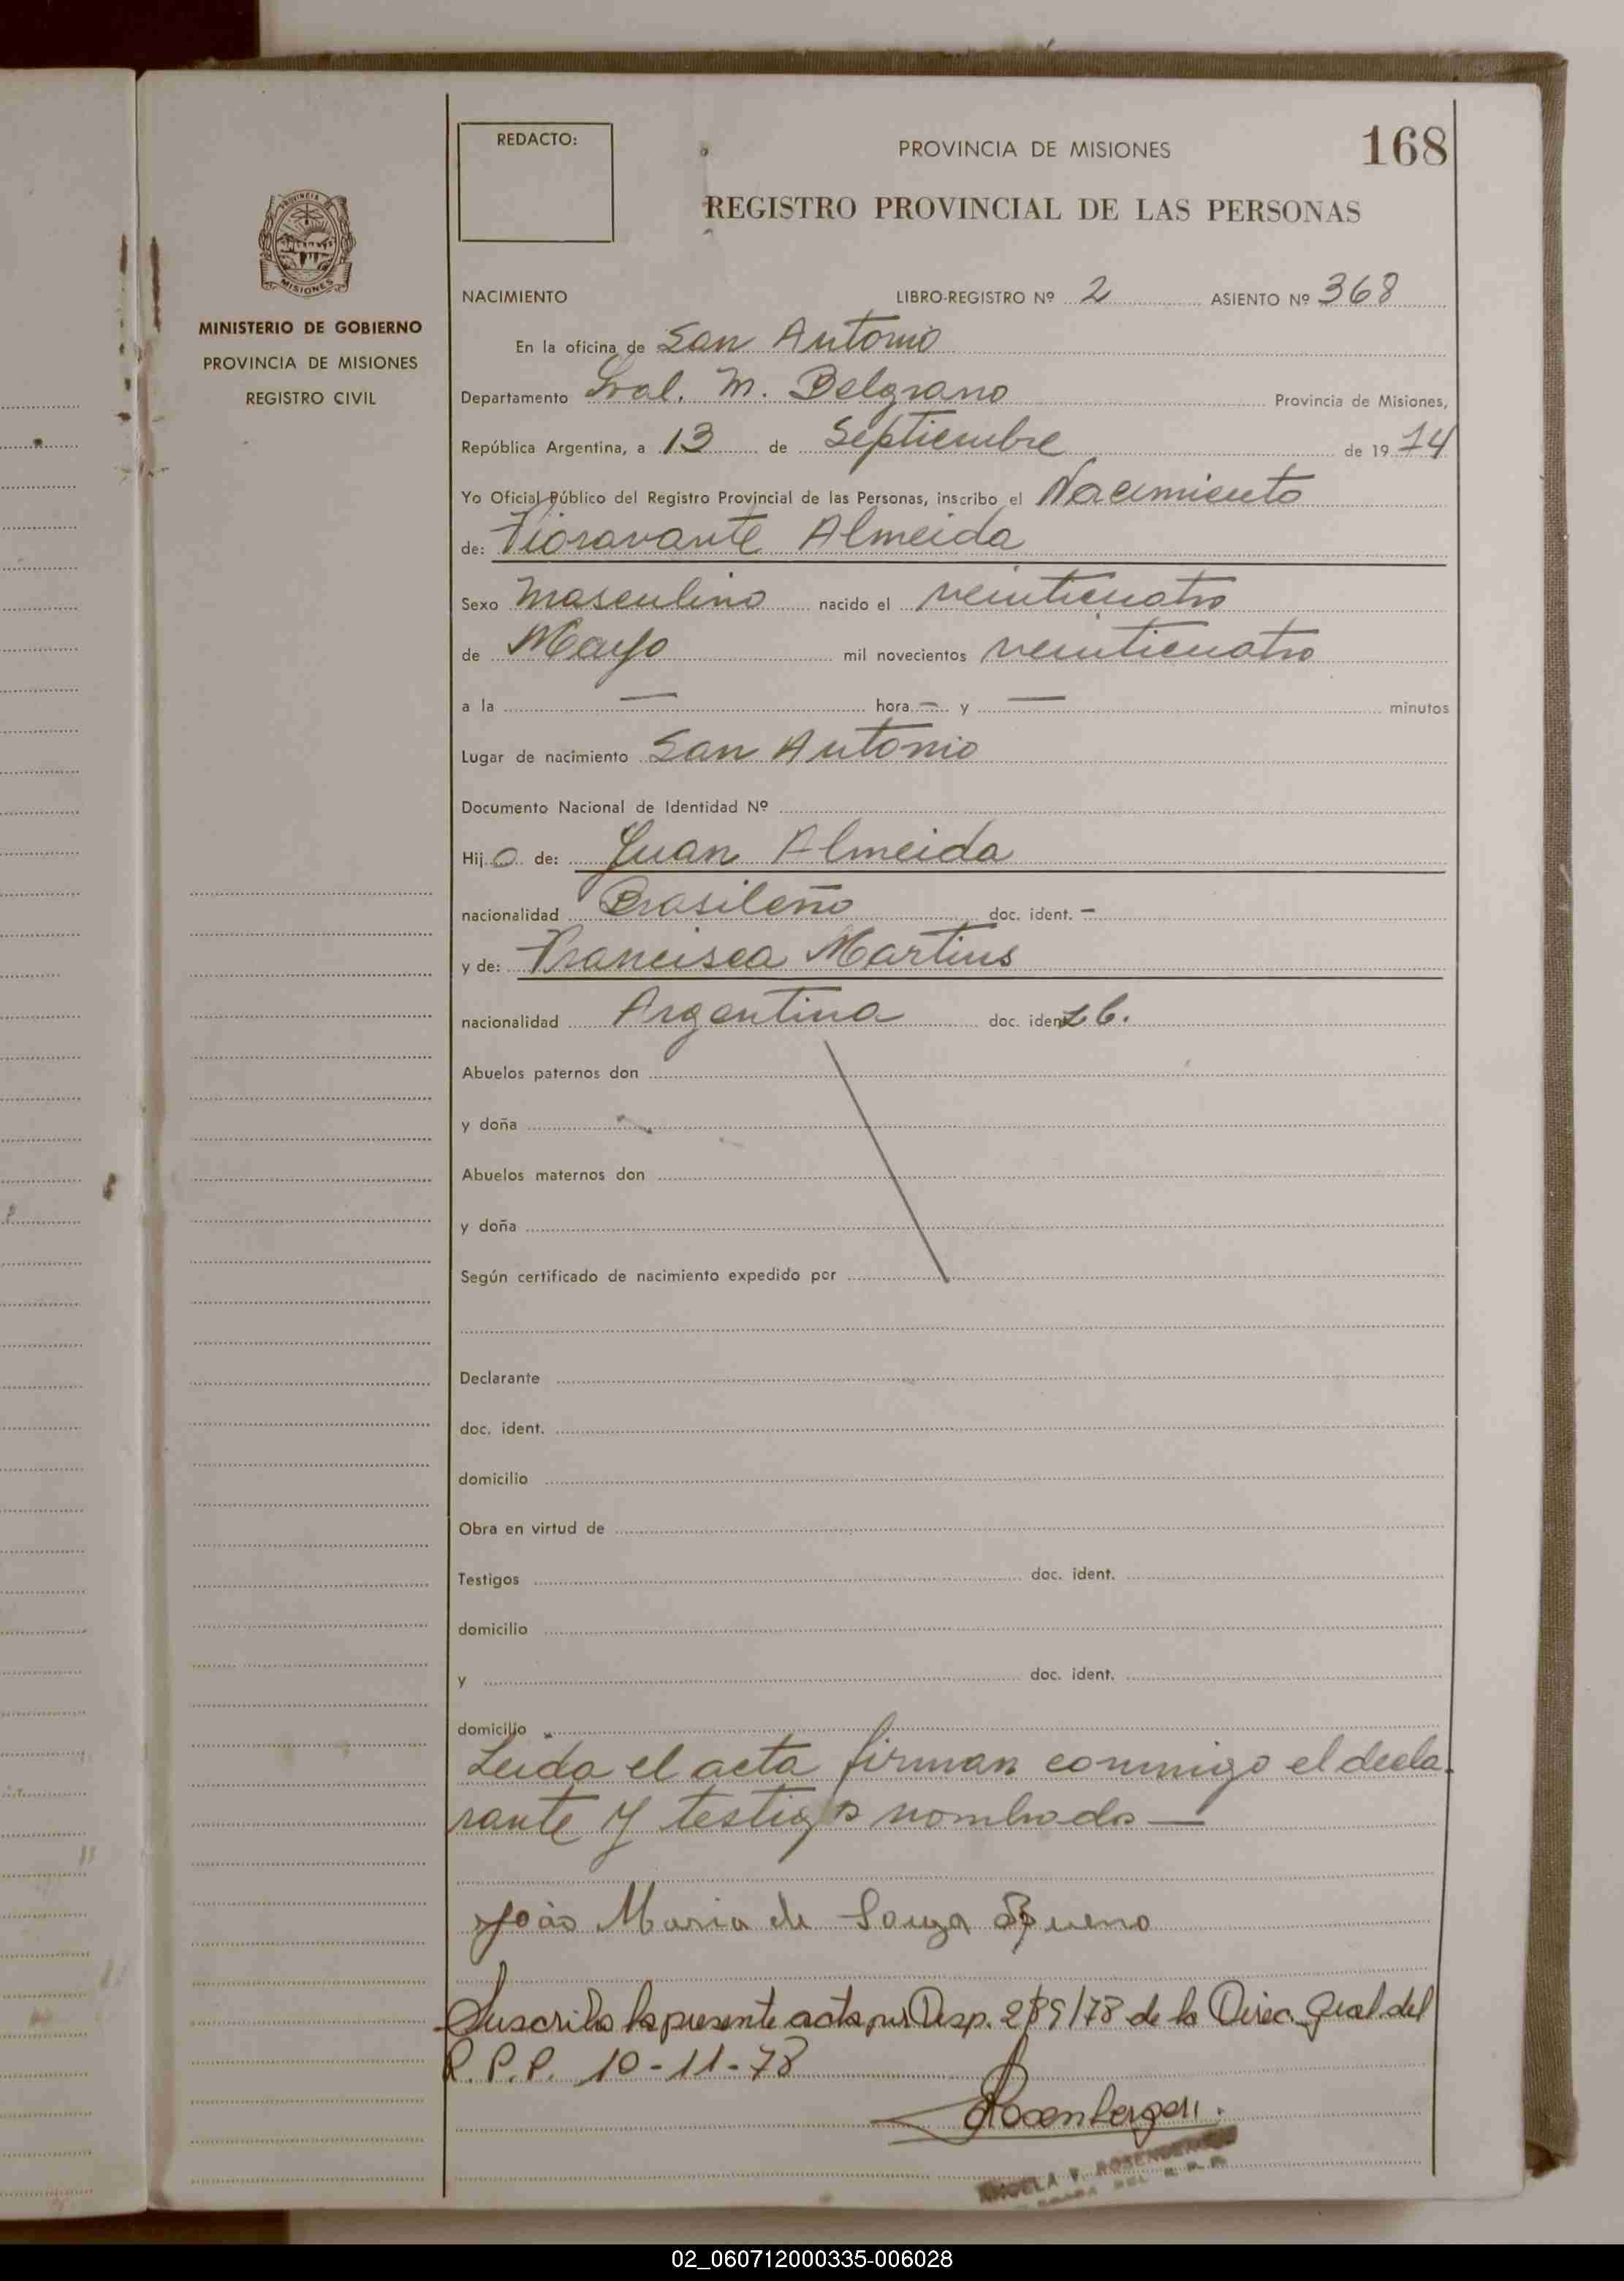 REDACTO:
PROVINCIA DE MISIONES
168
REGISTRO PROVINCIAL DE LAS PERSONAS
MISIONES
MINISTERIO DE GOBIERNO
PROVINCIA DE MISIONES
REGISTRO CIVIL
NACIMIENTO LIBRO-REGISTRO Nº 2 ASIENTO Nº 368
En la oficina de San Antonio
Departamento Gral. M. Belgrano Provincia de Misiones,
República Argentina, a 13 de Septiembre de 19 74
Yo Oficial Público del Registro Provincial de las Personas, inscribo el Nacimiento
de: Fioravante Almeida
Sexo Masculino nacido el veinticuatro
de Mayo mil novecientos veinticuatro
a la — hora — y — minutos
Lugar de nacimiento San Antonio
Documento Nacional de Identidad Nº
Hij o de: Juan Almeida
nacionalidad Brasileño doc. ident. —
y de: Francisca Martins
nacionalidad Argentina doc. ident
Abuelos paternos don
y doña
Abuelos maternos don
y doña
Según certificado de nacimiento expedido por
Declarante
doc. ident.
domicilio
Obra en virtud de
Testigos doc. ident.
domicilio
y doc. ident.
domicilio
Leida el acta firman conmigo el decla-
rante y testigos nombrados —
João Maria de Souza Bueno
Suscribo la presente acta por Disp. 289/78 de la Direc. Gral. del
R.P.P. 10-11-78
Rosenberger
ANGELA V. ROSENBERGER
DEL R.P.P.
02_060712000335-006028